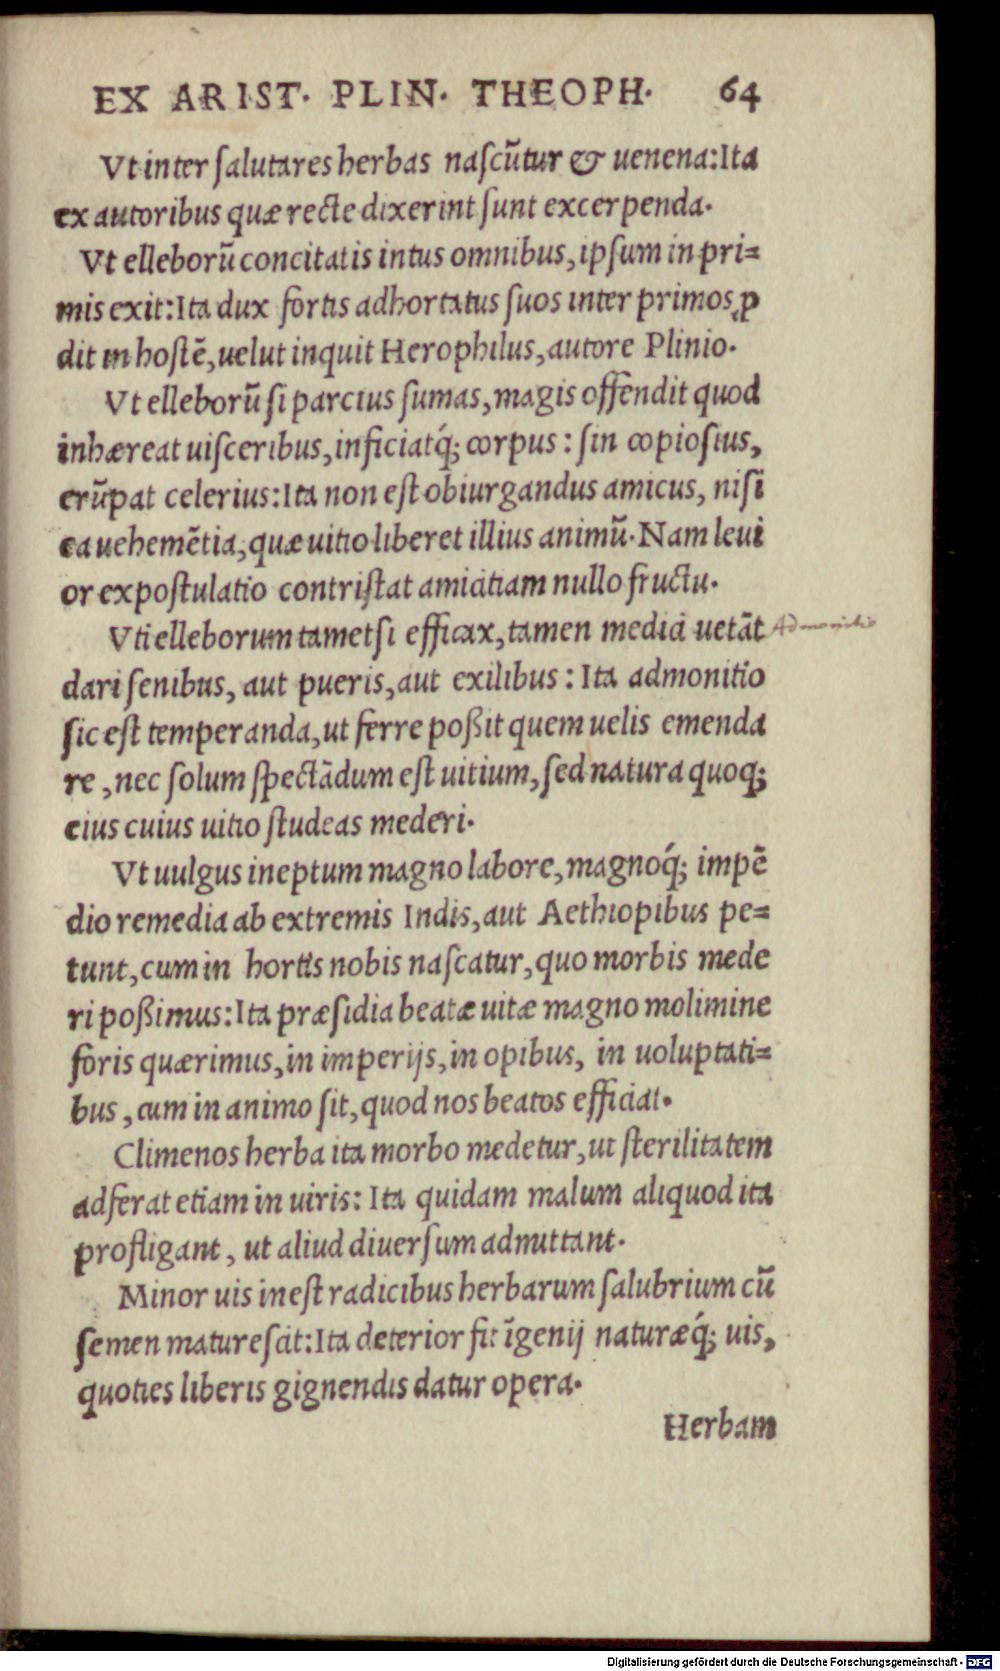 EX ARIST. PLIN. THEOPH. 64
Vt inter ſalutares herbas naſcũtur & uenena: Ita
ex autoribus quæ recte dixerint ſunt excerpenda.
Vt elleborũ concitatis intus omnibus, ipſum in pri=
mis exit: Ita dux fortis adhortatus ſuos inter primos ꝓ
dit in hoſtẽ, uelut inquit Herophilus, autore Plinio.
Vt elleborũ ſi parcius ſumas, magis offendit quod
inhæreat uiſceribus, inficiatq́; corpus: ſin copioſius,
erũpat celerius: Ita non eſt obiurgandus amicus, niſi
ea uehemẽtia, quæ uitio liberet illius animũ. Nam leui
or expoſtulatio contriſtat amicitiam nullo fructu.
Vti elleborum tametſi efficax, tamen medici uetãt Admonitio
dari ſenibus, aut pueris, aut exilibus: Ita admonitio
ſic eſt temperanda, ut ferre poßit quem uelis emenda
re, nec ſolum ſpectãdum eſt uitium, ſed natura quoq;
eius cuius uitio ſtudeas mederi.
Vt uulgus ineptum magno labore, magnoq́; impẽ
dio remedia ab extremis Indis, aut Aethiopibus pe=
tunt, cum in hortis nobis naſcatur, quo morbis mede
ri poßimus: Ita præſidia beatæ uitæ magno molimine
foris quærimus, in imperijs, in opibus, in uoluptati=
bus, cum in animo ſit, quod nos beatos efficiat.
Climenos herba ita morbo medetur, ut ſterilitatem
adferat etiam in uiris: Ita quidam malum aliquod ita
profligant, ut aliud diuerſum admittant.
Minor uis ineſt radicibus herbarum ſalubrium cũ
ſemen matureſcit: Ita deterior fit ĩgenij naturæq́; uis,
quoties liberis gignendis datur opera.
Herbam
Digitalisierung gefördert durch die Deutsche Forschungsgemeinschaft - DFG